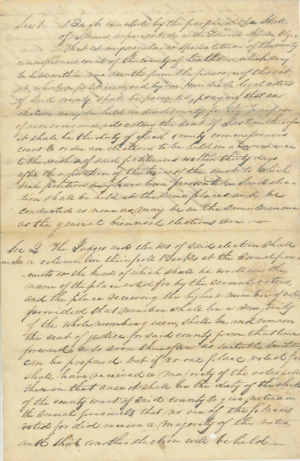 Sec 1. Be it enacted by the people of the State
of Illinois represented in the General Assembly
That at any regular or special term of the county
commissioners court of the county of which may
be held within nine months from the passage of this act
at which a petition signed by one hundred legal voters
of said county shall be presented, praying that an
election may be held in said county for the purpose
it shall be the duty of said county commissioners
court to order an election to be held in accordance
to the wishes of such petitioners within thirty days
after the of the court to which
such petition may have been presented. Such elec-
tion shall be held at the same places and be
conducted as near as may be in the same manner
as the general biennial elections are
Sec 2 The Judges and clerks of said election shall
make a column in their poll books at the
in the head of which shall be written the
name of the place voted for by the several voters,
and the place receiving the highest number of votes
provided that number shall be a majority
of the whole number given shall be and remain
the seat of justice for said county from that time
forward as soon thereafter as suitable buildings
can be prepared but if no one place voted for
shall have received a majority of the votes polled
then in that case it shall be the duty of the clerk
of the county court of said county to give notice in
the several precincts that no one of the places
voted for did receive a majority of the votes
and that another election will be held